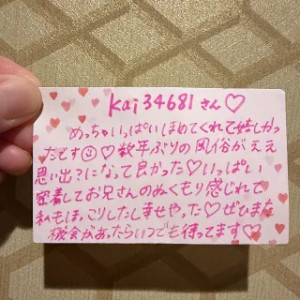 kaj34681さん♡
めっちゃいっぱいほめてくれて嬉しかっ
たです☺♡数年ぶりの風俗がええ
思い出?になって良かった♡いっぱい
密着してお兄さんのぬくもり感じれて
私もほっこりしたし幸せやった♡ぜひまた
機会があったらいつでも待ってます♡